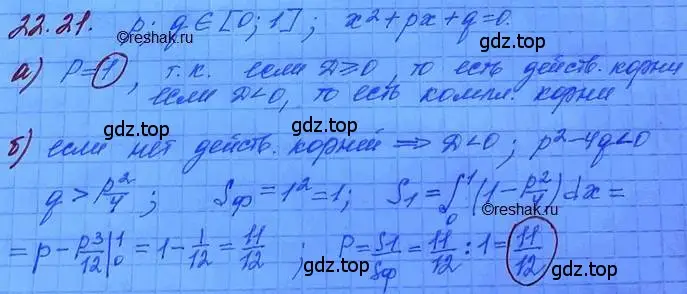 22.21. p; q ∈ [0; 1]; x² + px + q = 0.
©reshak.ru
а) P = 1, т.к. если D ≥ 0, то есть действ. корни
если D < 0, то есть компл. корни
gdz.top gdz.top
б) если нет действ. корней ⇒ D < 0; p² - 4q < 0
gdz.top
q > p²/4; Sф = 1² = 1; S₁ = ∫₀¹ (1 - p²/4) dx =
©reshak.ru
= p - p³/12 |₀¹ = 1 - 1/12 = 11/12; P = S₁/Sф = 11/12 : 1 = 11/12
gdz.top gdz.top